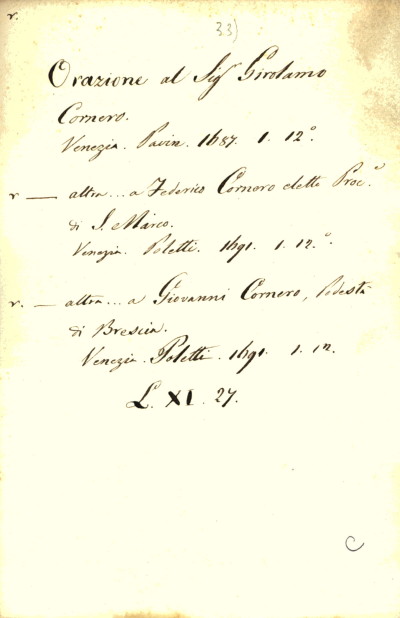 r.
33)
Orazione al Sigr Girolamo
Cornero.
Venezia. Pavin. 1687. 1. 12.°
r — altra... a Federico Cornoro eletto Proc.r
di S. Marco.
Venezia. Poletti. 1691. 1. 12.°
r. — altra... a Giovanni Cornero, Podestà
di Brescia.
Venezia. Poletti. 1691. 1. 12.
L. XI. 27.
C